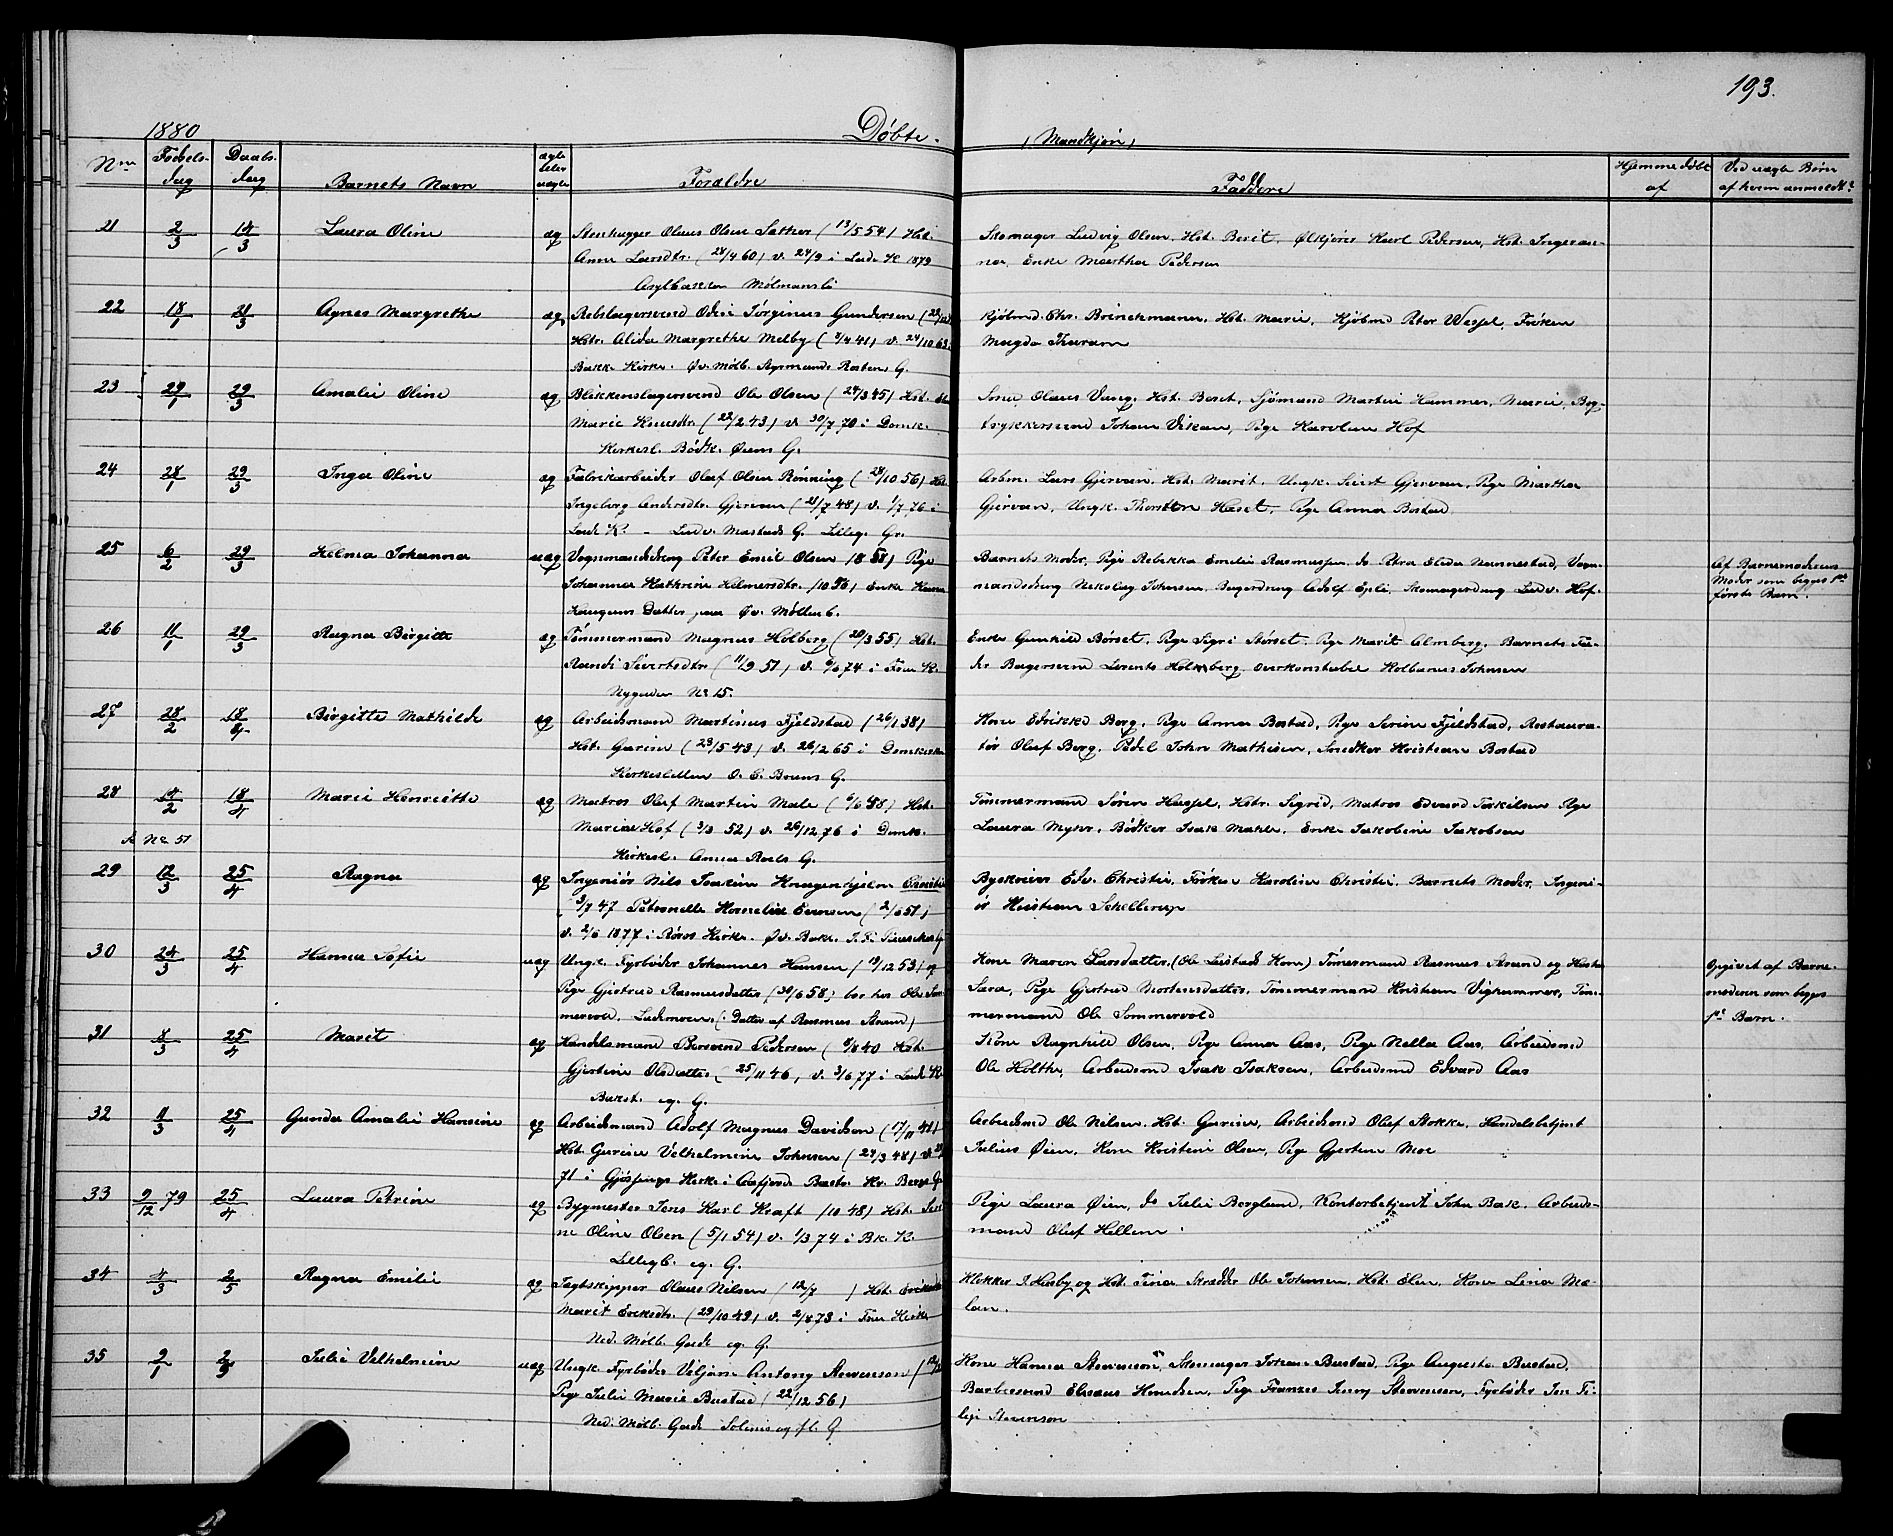 193.
1880
Døbte.
(Mandkjøn)
Nr.
Fødsels-
dag
Daabs-
dag
Barnets Navn
ægte
eller
uægte
Forældre
Faddere
Hjemmedøbt
af
Ved uægte Børn
af hvem anmeldt?
21 2/3 14/3 Laura Oline æg Stenhugger Olaus Olsen Sæther (13/5 54) Hst.
Anne Larsdtr. (28/4 60) v. 24/9 i Lade K 1879
Asylbakken Mølmansli
Skomager Ludvig Olsen, Hst. Berit, Ølkjører Karl Pedersen, Hst. Ingeran-
na, Enke Martha Pedersen
22 18/1 21/3 Agnes Margrethe æg Rebslagersvend Odin Jørginus Gundersen
Hstr. Alida Margrethe Melby (7/4 41) v. 24/10 63
Bakke Kirke. Øv. Mølb. Styrmands Rostens G.
Kjøbmd. Chr. Brinchmann, Hst. Marie, Kjøbmd Peter Wessel, Frøken
Magda Thuram
23 29/1 29/3 Amalie Oline æg Blikkenslagersvend Ole Olsen (24/3 45) Hst.
Marie Knudsdtr. (22/2 43) v. 30/7 70 i Domk.
Kirkesl. Bødk. Øiens G.
Snr. Olaus Vang, Hst. Beret, Sjømand Martin Hammer, Marie, Bog-
trykkersvend Johan Vikan, Pige Karoline Hof
24 28/1 29/3 Inga Oline æg Fabrikarbeider Oluf Olsen Rønning (28/10 56) Hst.
Ingeborg Andersdtr. Gjervan (21/7 48) v. 1/7 76 i
Lade K. - Ludv. Mastads G. Lilleg. Gr.
Arbm. Lars Gjervan, Hst. Marit, Ungk. Sivert Gjervan, Pige Martha
Gjervan, Ungk. Thorsten Haset, Pige Anna Bostad
25 6/2 29/3 Helma Johanna uæg Vognmandsdreng Peter Emil Olsen 1858) Pige
Johanna Kathrine Helmersdtr. /10 56) Enke Hanna
Haugens Datter paa Øv. Møllenb.
Barnets Moder, Pige Rebekka Emelie Rasmussen, do Petra Elida Nannestad, Vogn-
mandsdreng Nikolay Johnsen, Bagerdreng Adolf Epli, Skomagerdreng Ludv. Hof.
Af Barnemoderens
Moder som begges 1ste
første Barn.
26 11/1 29/3 Ragna Birgitte æg Tømmermand Magnus Holberg (20/3 55) Hst.
Randi Sivertsdtr. (11/9 51) v. 6/6 74 i Frue K.
Nygaden No 15.
Enke Gunhild Børset, Pige Sigri Størset, Pige Marit Almberg, Barnets Fa-
der Bagersvend Lorents Holmberg, Overkonstabel Kolbanus Johnsen
27 28/2 18/4 Birgitte Mathilde æg Arbeidsmand Martinus Fjeldstad (26/1 38)
Hst. Gurine (23/5 43) v. 26/2 65 i Domkirken
Kirkesletten O. C. Bruns G.
Kone Edvikke Berg, Pige Anna Bostad, Pige Serine Fjeldstad, Restaura-
tør Oluf Berg, Pedel John Mathisen, Snedker Kristian Bostad
28 14/2 18/4 Marie Henriette æg Matros Oluf Martin Male (6/6 48) Hst.
Maria Hof (3/3 52) v. 26/12 76 i Domk.
Kirkesl. Anna Roels G.
Tømmermand Søren Hassel, Hstr. Sigrid, Matros Edvard Torkilsen Pige
Laura Myhr, Bødker Isak Mahle, Enke Jakobine Jakobsen
No 51
29 12/3 25/4 Ragna æg Ingeniør Nils Joakim Knagenhjelm Christie
(3/7 47 Petronelle Kornelia Evensen (2/6 51)
v. 2/6 1877 i Røros Kirke. Øv. Bakl.
Byskriver Edv. Christie, Frøken Karoline Christie, Barnets Moder, Ingeni-
ør Kristian Schellerup
30 24/3 25/4 Hanna Sofie uæg Ungk. Fyrbøder Johannes Hansen (19/12 53) og
Pige Gjertrud Rasmusdatter (30/6 58) bor hos Ole Som-
mervold, Lademoen. (Datter af Rasmus Strand)
Kone Maren Larsdatter, (Ole Leistads Kone) Tømermand Rasmus Strand og Hustr.
Sara, Pige Gjertrud Mortensdatter, Tømmermand Kristian Vighammer, Tøm-
mermand Ole Sommervold
Opgivet af Barne-
moderen som begges
1ste Barn.
31 8/3 25/4 Marit æg Handelsmand Bersvend Pedersen (8/8 40 Hst.
Gjertine Olsdatter (25/11 46) v. 3/6 77 i Lade K
Bakst. eg. G.
Kone Ragnhild Olsen, Pige Anna Aas, Pige Nella Aas, Arbeidsmd
Ole Holthe, Arbeidsmd Isak Isaksen, Arbeidsmd Edvard Aas
32 11/3 25/4 Gunda Amalie Hansine æg Arbeidsmand Adolf Magnus Davidsen (17/11 41)
Hst. Gurine Velhelmine Johnsen (24/3 48) v.
71 i Kirke i Aafjord
Arbeidsmd Ole Nilsen, Hst. Gurine, Arbeidsmd Oluf Stokke, Handelsbetjent
Julius Øien, Kone Kristine Olsen, Pige Gjertine Moe
33 9/12 79 25/4 Laura Petrine æg Bygmester Jens Karl Kraft (10 48) Hst.
ne Oline Olsen (5/1 54) v. 1/3 74 i Bk. K.
Lillegb. eg. G.
Pige Laura Øien, do Julie Berglund, Kontorbetjent John Bak, Arbeids-
mand Oluf Hellem.
34 4/3 2/5 Ragna Emilie æg Jagtskipper Olaus Nilsen (12/7 ) Hst.
Marit Eriksdtr. (29/10 49) v. 2/8 73 i Frue Kirke
Ned. Mølb. Gade eg. G.
Klokker J. Husby og Hst. Tina Skrædder Ole Johansen, Hst. Elen, Kone Lina Mæ-
lan.
35 9/1 2/5 Julie Velhelmine uæg Ungk. Fyrbøder Veljam Antony Stevenson
Pige Julie Marie Bustad (22/12 56)
Ned. Mølb. Gade
Kone Hanna Stevenson, Skomager Johan Bustad, Pige Augusta Bustad,
Barbersvend Elisæus Knudsen, Pige Franzes Jenny Stevensen, Fyrbøder
Stevenson